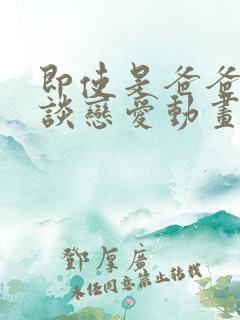 即使是爸爸
談戀愛動畫
鄧厚廣
未经同意禁止转载